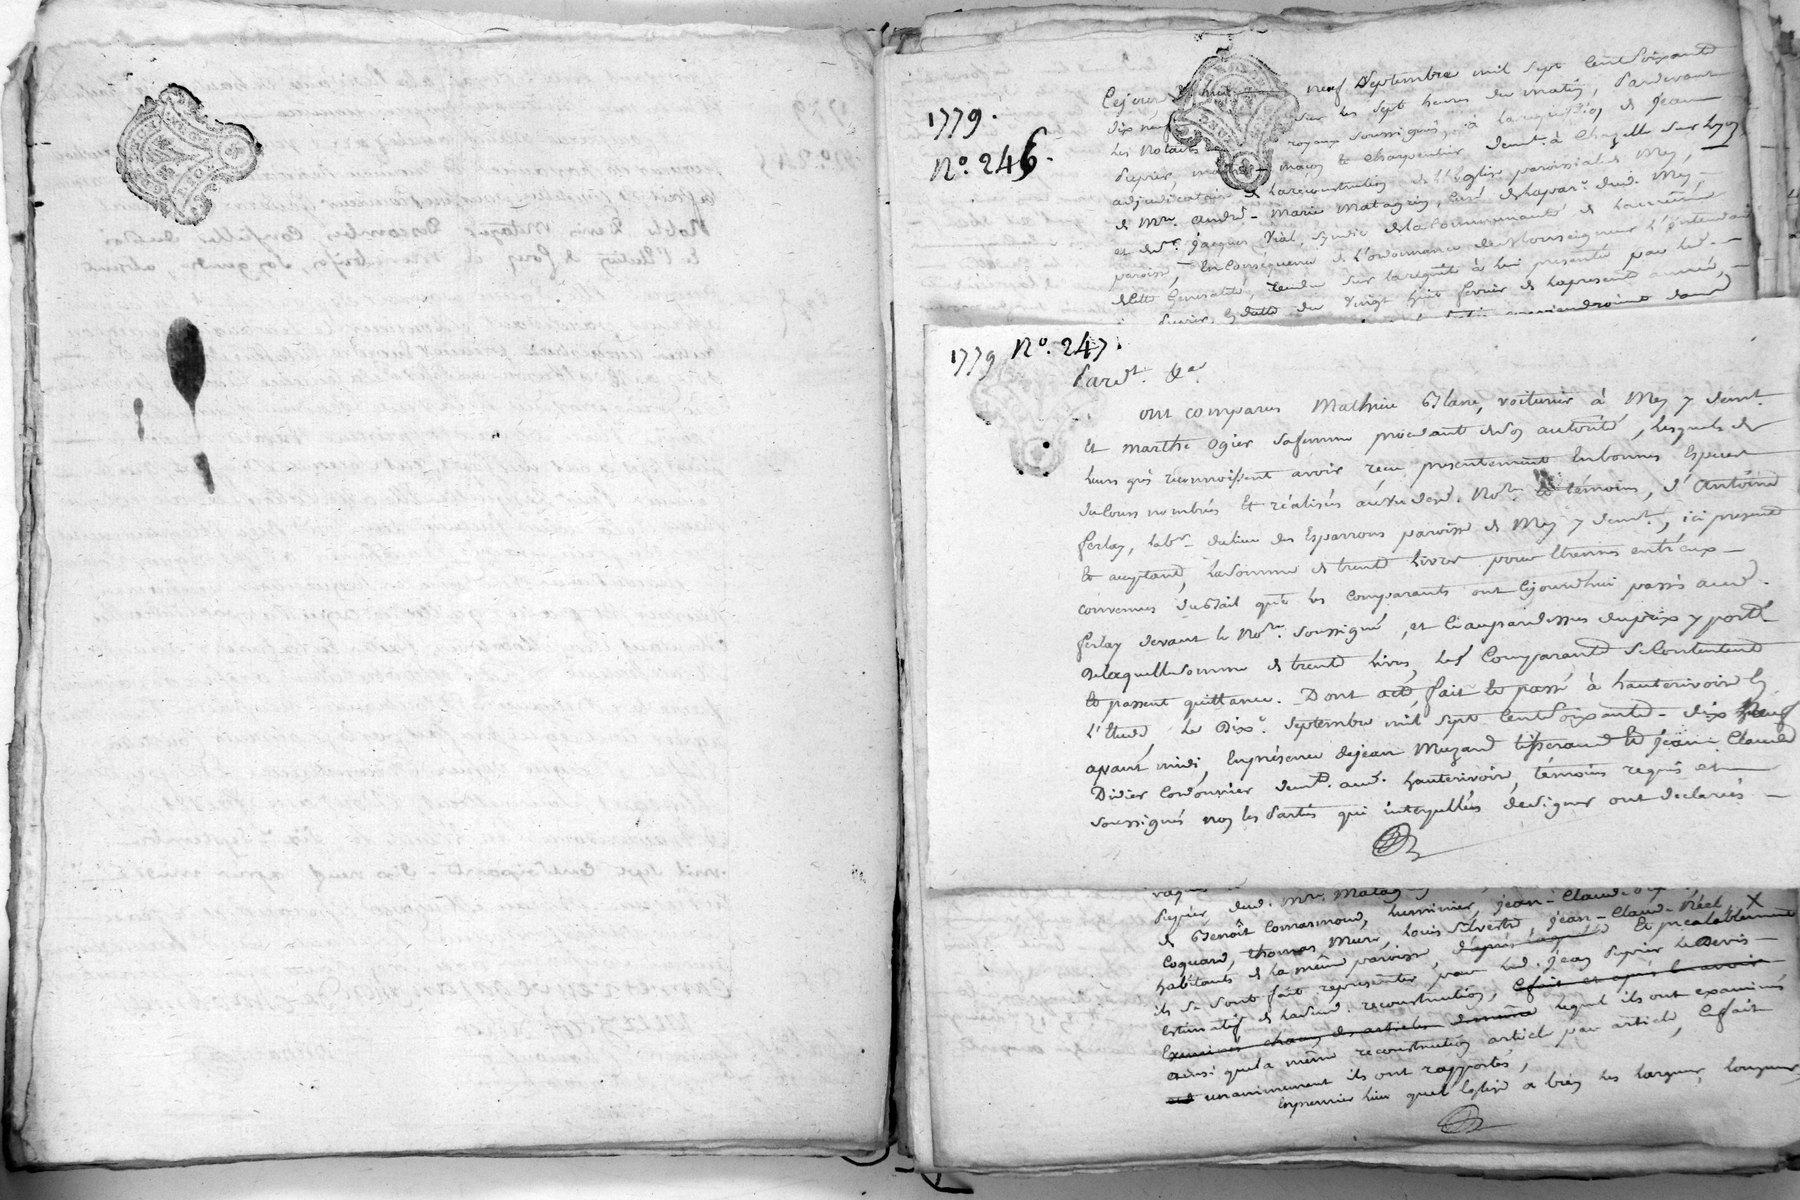 1779.
N.º 246.
Cejourd'hui neuf Septembre mil sept cent Soixante
dix neuf sur les sept heures du matin, Pardevant
les Notaires royaux soussignés, à la requisition de Jean
Pupier, maçon & charpentier demt. à Chazelle sur Lyon
adjudicataire de la reconstruction de l'Eglise paroissiale de Mey,
de Mre. André-Marie Matagrin, Curé de la par.e dud. Mey,
et de Sr. Jacques Vial, syndic de la Communauté de la même
paroisse, En Conséquence de l'ordonnance de Monseigneur l'Intendant
de cette Généralité, rendue sur la requête à lui presenté par led.
Pupier, en datte du Vingt huit fevrier de la presente année,
1779 N.º 247.
Pardt. &a.
ont comparus Mathieu Blanc, voiturier à Mey y demt.
et marthe ogier sa femme procedant de son autorité, lesquels de
leurs grés reconnoissent avoir reçu presentement En bonnes Especes
de cours nombrés et réalisés au vu desd. Nore. et témoins, d'Antoine
ferlay, labr. du lieu des Esparrons paroisse de Mey y demt., ici present
et acceptant, la somme de trente livres pour Etrennes entr'eux
convenues du Bail que les Comparants ont Cejourd'hui passés aud.
ferlay devant le Nore. soussigné, et Ce au pardessus du prix y porté
De laquelle somme de trente livres, les Comparants se Contentent
et passent quittance. Dont acte, fait et passé à hauterivoire En
l'Etude, le Dix.e Septembre mil sept Cent Soixante-dix Neuf
avant midi, En présence de jean Muzard tisserand et Jean-Claude
Didier Cordonnier demts. aud. hauterivoire, témoins requis et
soussignés non les Parties qui interpellées de signer ont declarées
Pupier, dud. Mre. Matagrin
de Benoît Comarmond, luminier, Jean-Claude
Coquard, thomas Mure, louis Silvestre, Jean-Claude Néel, X
habitants de la même paroisse, d'après laquelle Et prealablement
ils se sont fait representer par led. Jean Pupier le Devis
Estimatif de lad. reconstruction, & fait et après l'avoir
Examiné chacun des articles lequel ils ont examinés
ainsi que la même reconstruction article par article, & fait
unanimement ils ont rapportés,
En premier lieu que l'Eglise a bien les largeur, longueur